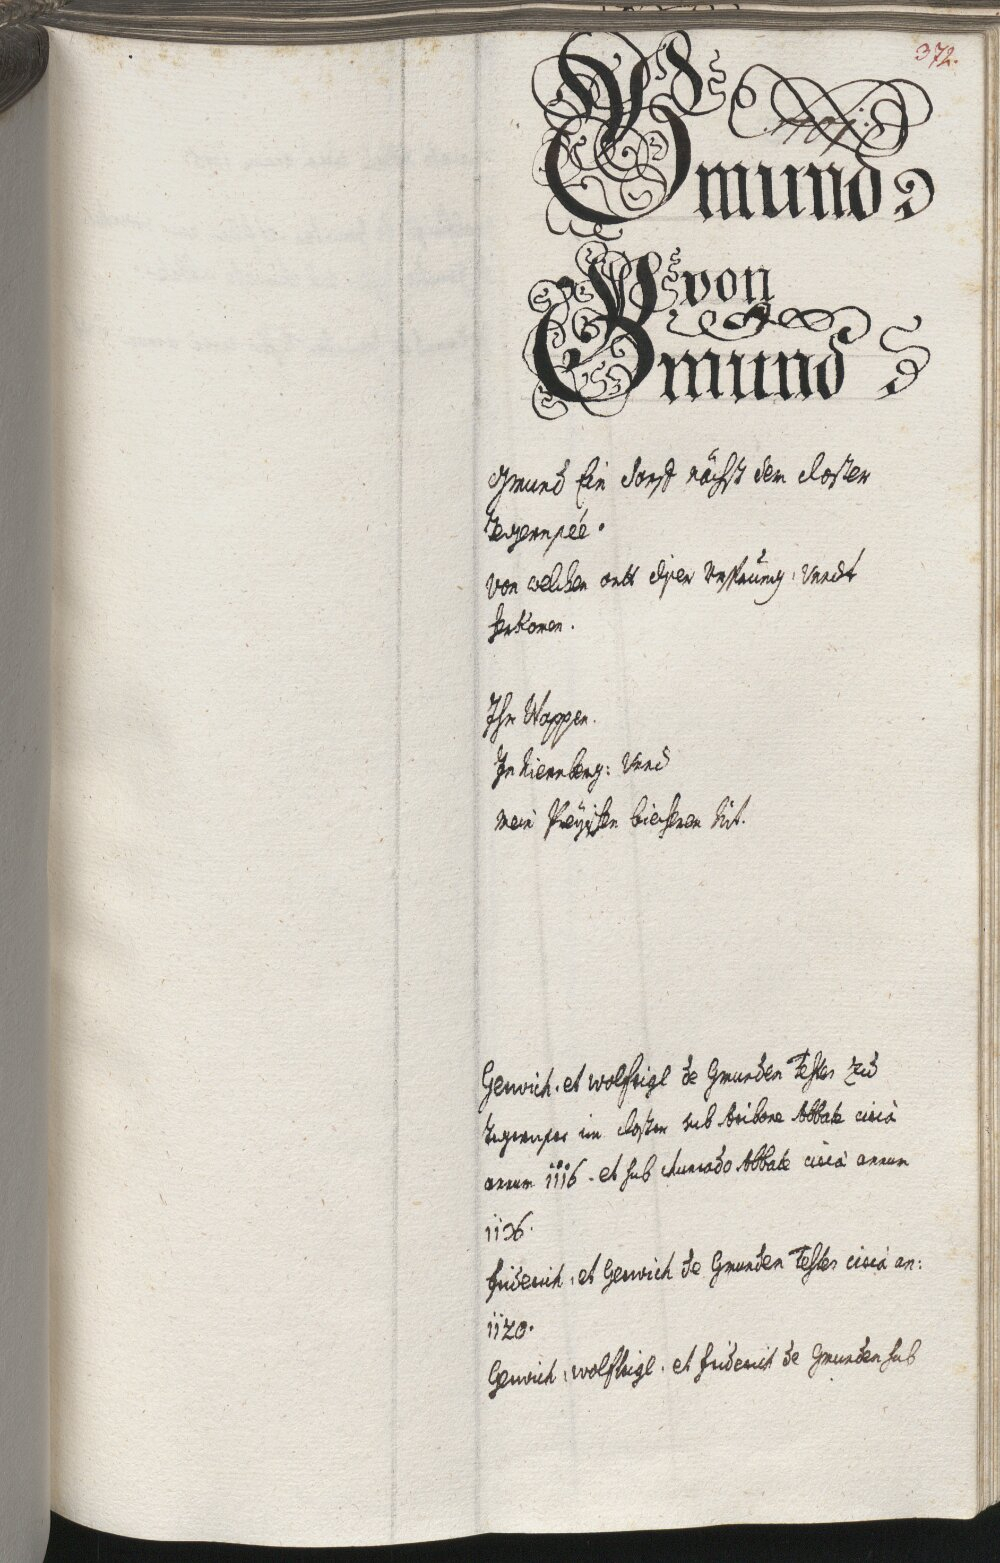 372.
Gmund
von
Gmund
Gmund Ein dorff nächst dem closter
Tegernsée.
von welchen ortt diser Vrsprung: Vnndt
herkomen.
Ihr Wappen.
In Niernberg: Vnnd
mein Preÿsen biecheren nit.
Gerwich. et wolftrigl de Gmunden Testes zu
Tegernsee im closter sub Aribone Abbate circà
annum 1116. et sub Abbate circà annum
113.
friderich, et Gerwich de Gmunden Testes circà an:
1120.
Gerwich, wolftrigl. et friderich de Gmunden sub